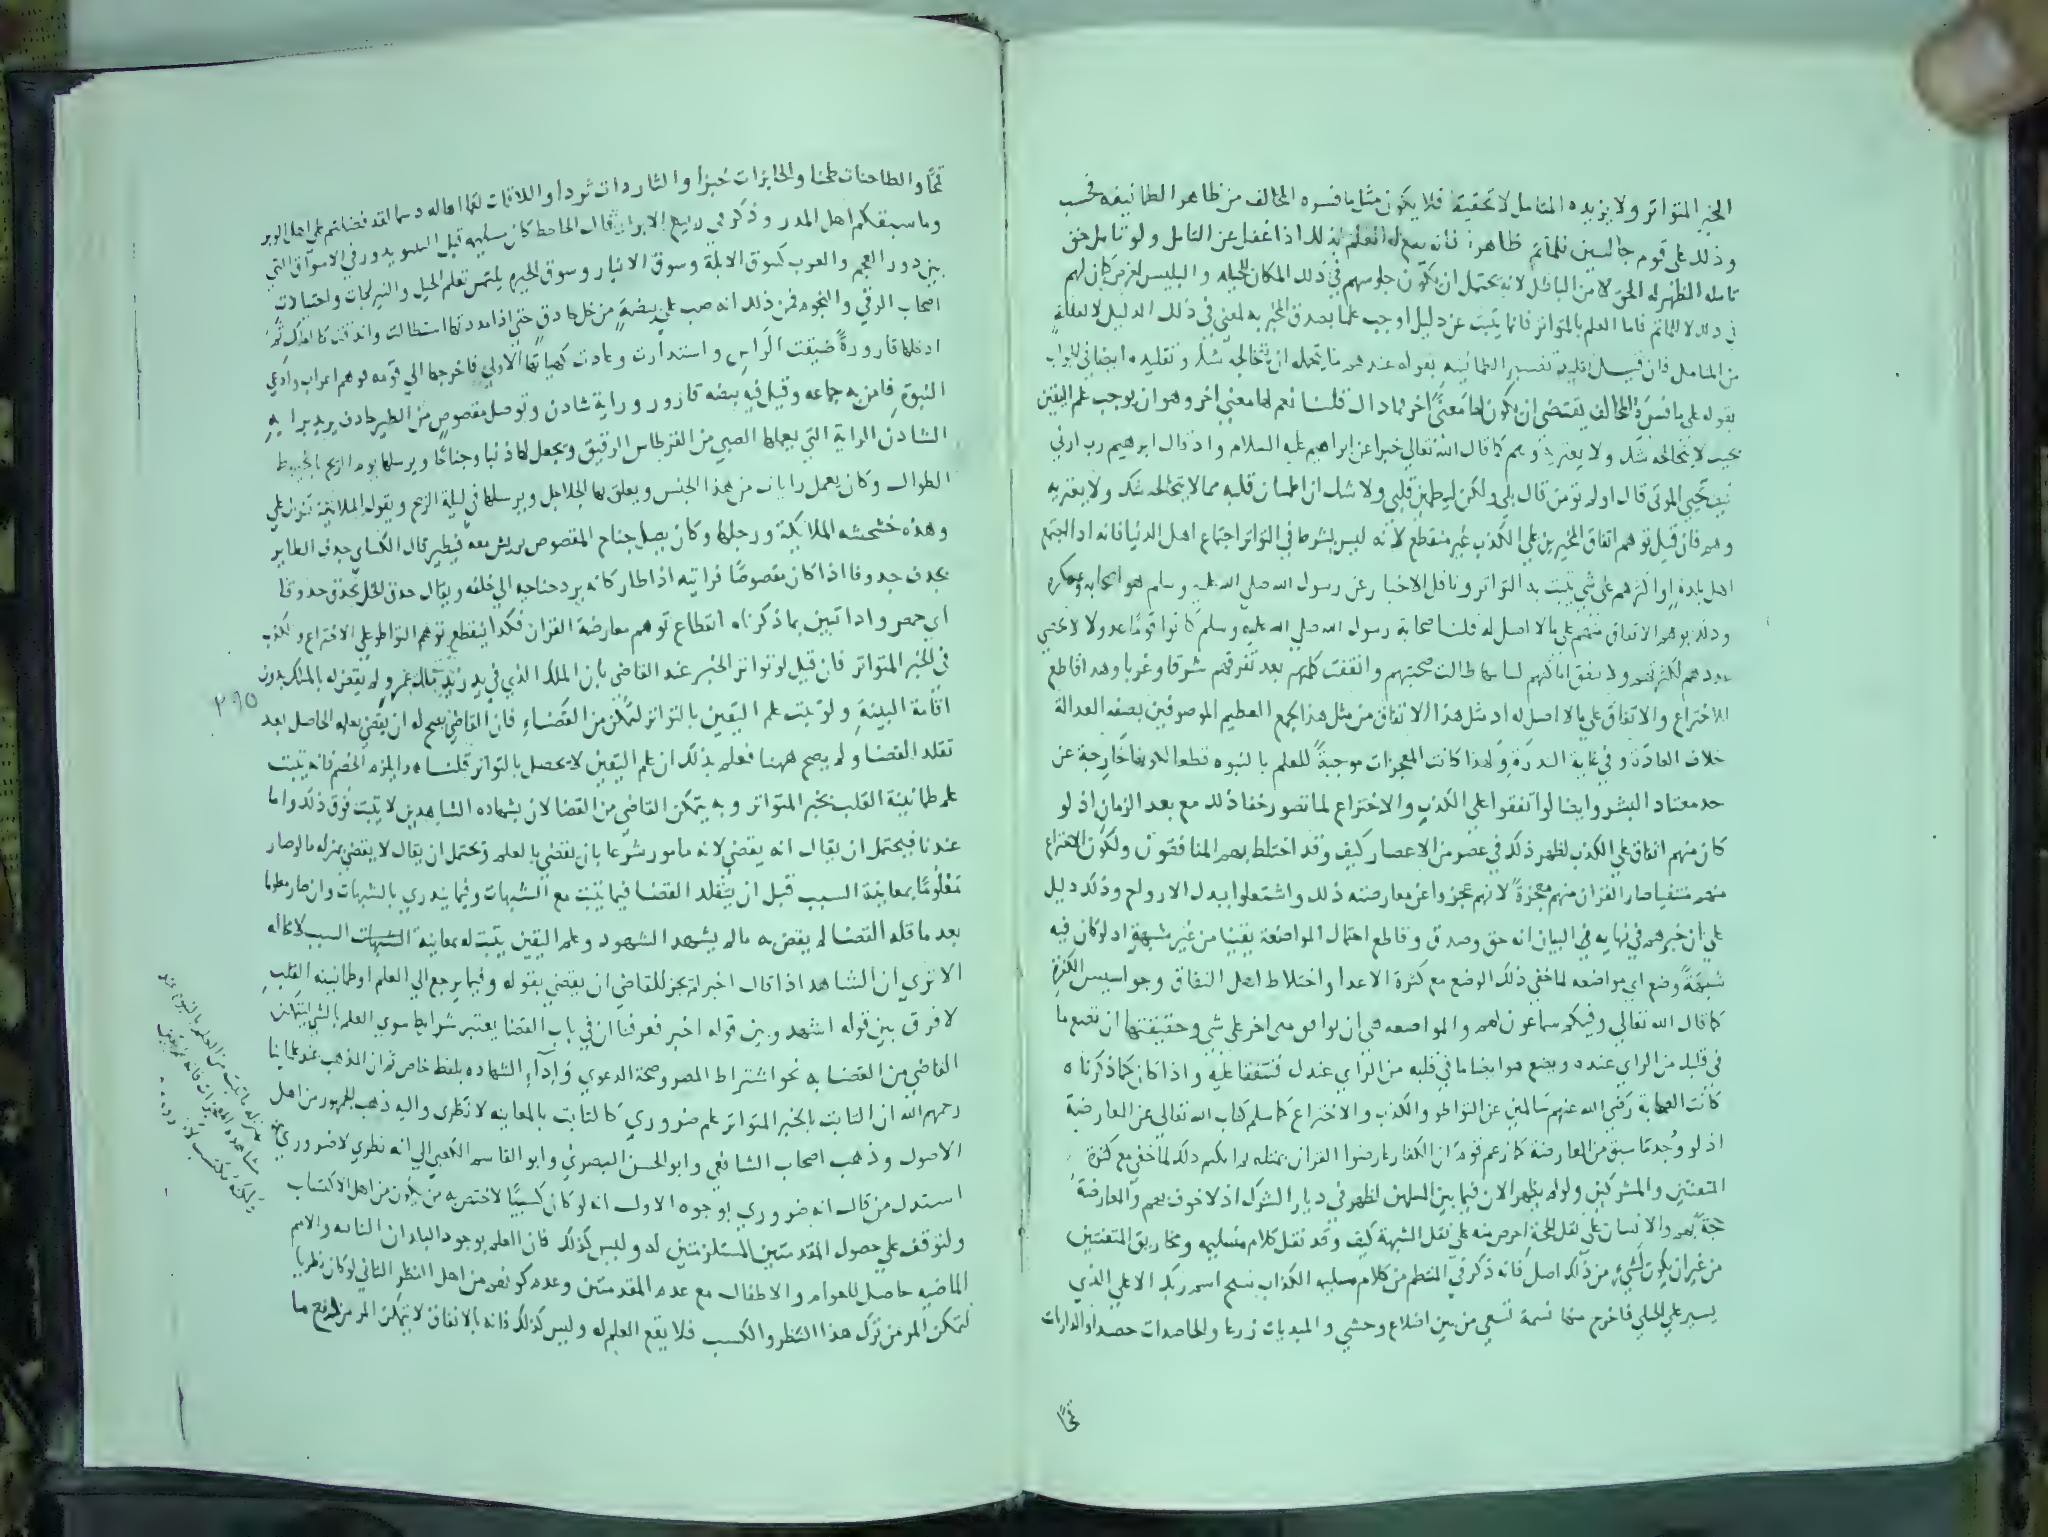 الخبر المتواتر ولا يزيده التامل لا تحقيقا فلا يكون مثل ما فسره المخالف من ظاهر الطمانينه فحسب
وذلك على قوم جالسين للماتم ظاهرا فانه يقع له العلم بذلك اذا غفل عن التامل ولو تامل حق
تامله لظهر له الحق لا من الباطل لانه يحتمل ان يكون جلوسهم في ذلك المكان للحيله والتلبيس لغرض كان لهم
في ذلك لا للماتم فاما العلم بالمتواتر فانما يثبت عن دليل اوجب علما بصدق المخبر به لمعنى في ذلك الدليل لا لغفلة
من المتامل فان قيل تفسير الطمانينه بقوله عندهم ما يحتمل ان يتخالجه شك وتقليده ايضا في الجواب
بقوله على ما فسره المخالف يقتضى ان يكون لها معنى اخر فما ذاك قلنا نعم لها معنى اخر وهو ان يوجب علم اليقين
بحيث لا يتخالجه شك ولا يعتريه وهم كما قال الله تعالى خبرا عن ابراهيم عليه السلام واذ قال ابراهيم رب ارني
كيف تحيي الموتى قال اولم تؤمن قال بلى ولكن ليطمئن قلبي ولا شك ان اطمينان قلبه مما لا يتخالجه شك ولا يعتريه
وهم فان قيل توهم اتفاق المخبرين على الكذب غير منقطع لانه ليس بشرط في التواتر اجتماع اهل الدنيا فانه اذا اجتمع
اهل بلدة او اكثرهم على شي يثبت به التواتر وناقل الاخبار عن رسول الله صلى الله عليه وسلم هم اصحابه وعسكره
وذلك يوهم الاتفاق منهم على ما لا اصل له قلنا صحابة رسول الله صلى الله عليه وسلم كانوا قوما عدولا لا يحصى
عددهم لكثرتهم ولا يتفق اماكنهم لما طالت صحبتهم واتفقت كلمتهم بعد تفرقهم شرقا وغربا وهذا قاطع
للاختراع والاتفاق على ما لا اصل له اذ مثل هذا الاتفاق من مثل هذا الجمع العظيم الموصوفين بصفه العدالة
خلاف العادة وفي غاية الندرة ولهذا كانت المعجزات موجبة للعلم بالنبوه قطعا لكونها خارجة عن
حد معتاد البشر وايضا لو اتفقوا على الكذب والاختراع لما تصور خفا ذلك مع بعد الزمان اذ لو
كان منهم اتفاق على الكذب لظهر ذلك في عصر من الاعصار كيف وقد اختلط بهم المنافقون ولكون الاختراع
منهم منتفيا صار القران منهم معجزة لانهم عجزوا عن معارضته ذلك واشتغلوا ببذل الارواح وذلك دليل
على ان خبرهم في نهايه في البيان انه حق وصدق وقاطع احتمال المواضعة يقينا من غير شبهة اذ لو كان فيه
شبهة وضع اي مواضعه لما خفي ذلك الوضع مع كثرة الاعدا واختلاط اهل النفاق وجواسيس الكفرة
كما قال الله تعالى وفيكم سماعون لهم والمواضعه هي ان يوافق مع اخر على شي وحقيقتها ان تضع ما
في قلبك من الراي عنده ويضع هو ايضا ما في قلبه من الراي عندك فتتفقا عليه واذا كان كما ذكرناه
كانت الصحابة رضي الله عنهم سالمين عن التواطو والكذب والاختراع كما سلم كتاب الله تعالى عن المعارضة
اذ لو وجد ما سبق من المعارضة كما زعم قوم ان الكفار عارضوا القران بمثله لما خفي مع كثرة
المتعنتين والمشركين ولو لم يظهر الان فيما بين المسلمين لظهر في ديار الشرك اذ لا خوف لهم والمعارضة
حجة لهم والانسان على نقل الحجة احرص منه على نقل الشبهة كيف وقد نقل كلام مسيلمه ومخاريق المتعنتين
من غير ان يكون لشيء من ذلك اصل فانه ذكر في المنتظم من كلام مسيلمه الكذاب سبح اسم ربك الاعلى الذي
يسر على الحبلى فاخرج منها نسمة تسعى من بين اضلاع وحشى والمبديات زرعا والحاصدات حصدا والذاريات
قمحا
قمحا والطاحنات طحنا والخابزات خبزا والثاردات ثردا واللاقمات لقما اهاله وسمنا لقد فضلتم على اهل الوبر
وما سبقكم اهل المدر وذكر في ربيع الابرار قال الجاحظ كان مسيلمه قبل التنبو يدور في الاسواق التي
بين دور العجم والعرب كسوق الابلة وسوق الانبار وسوق الحيره يلتمس تعلم الحيل والنيرنجات واحتيالات
اصحاب الرقى والنجوم فمن ذلك انه صب على بيضة من خل حاذق حتى اذا مددتها استطالت
ادخلها قارورة ضيقت الراس واستدارت وعادت كهياتها الاولى فاخرجها الى قومه وهم اعراب وادعى
النبوة فامن به جماعه وقيل فيه بيضه قارور وراية شادن وتوصل مقصوص من الطير جادف يريد براية
الشادن الراية التي يعملها الصبي من القرطاس الرقيق وتجعل لها ذنبا وجناحا ويرسلها يوم الريح بالخيوط
الطوال وكان يعمل رايات من هذا الجنس ويعلق بها الجلاجل ويرسلها في ليلة الريح ويقول الملائكة تنزل علي
وهذه خشخشه الملائكة ورجلها وكان يصل جناح المقصوص بريش معه فيطير قال الكسائي جدف الطاير
يجدف جدوفا اذا كان مقصوصا فرايته اذا طار كانه يرد جناحيه الى خلفه ويقال حذق الخل يحذق حذوقا
اي حمض واذا تبين بما ذكرناه انقطاع توهم معارضة القران فكذا ينقطع توهم التواطو على الاختراع والكذب
في الخبر المتواتر فان قيل لو تواتر الخبر عند القاضي بان الملك الذي في يد زيد ملك عمرو لم يقض له بالملك بدون
اقامة البينة ولو يثبت علم اليقين بالتواتر لتمكن من القضاء فان القاضي يصح له ان يقضي بعلمه الحاصل بعد
تقلد القضا ولم يصح ههنا فعلم بذلك ان علم اليقين لا يحصل بالتواتر قلنا هذا يلزم الخصم فانه يثبت
علم طمانينة القلب بخبر المتواتر وبه يتمكن القاضي من القضا لان بشهاده الشاهدين لا يثبت فوق ذلك واما
عندنا فيحتمل ان يقال انه يقضي لانه مامور شرعا بان يقضي بالعلم ويحتمل ان يقال لا يقضي بمنزله ما لو صار
معلوما بمعاينة السبب قبل ان يتقلد القضا فيما يثبت مع الشبهات وفيما يندري بالشبهات وان صار معلوما
بعد ما قلد القضا لم يقض به ما لم يشهد الشهود وعلم اليقين يثبت له بمعاينة الشبهات السبب لا محاله
الا ترى ان الشاهد اذا قال اخبر لم يجز للقاضي ان يقضي بقوله وفيما يرجع الى العلم او طمانينه القلب
لا فرق بين قوله اشهد وبين قوله اخبر فعرفنا ان في باب القضا يعتبر شرايط سوى العلم بالشي ليتمكن
القاضي من القضا به نحو اشتراط المصر وصحة الدعوى وادآء الشهاده بلفظ خاص ثم ان المذهب عند علماينا
رحمهم الله ان الثابت بالخبر المتواتر علم ضروري كالثابت بالمعاينه لا نظرى واليه ذهب الجمهور من اهل
الاصول وذهب اصحاب الشافعي وابو الحسن البصري وابو القاسم الكعبي الى انه نظري لا ضروري
استدل من قال انه ضروري بوجوه الاول انه لو كان كسبيا لاختص به من يكون من اهل الاكتساب
ولتوقف على حصول المقدمتين المستلزمتين له وليس كذلك فان العلم بوجود البلدان النائيه والامم
الماضيه حاصل للعوام والاطفال مع عدم المقدمتين وعدم كونهم من اهل النظر الثاني لو كان نظريا
لتمكن المرء من ترك هذا النظر والكسب فلا يقع العلم له وليس كذلك فانه بالاتفاق لا يتمكن المرء من دفع ما
٢٩٥
بمنزله ما يثبت من العلم بالنبوه عند
مشاهده المعجزات فانه علم يقين